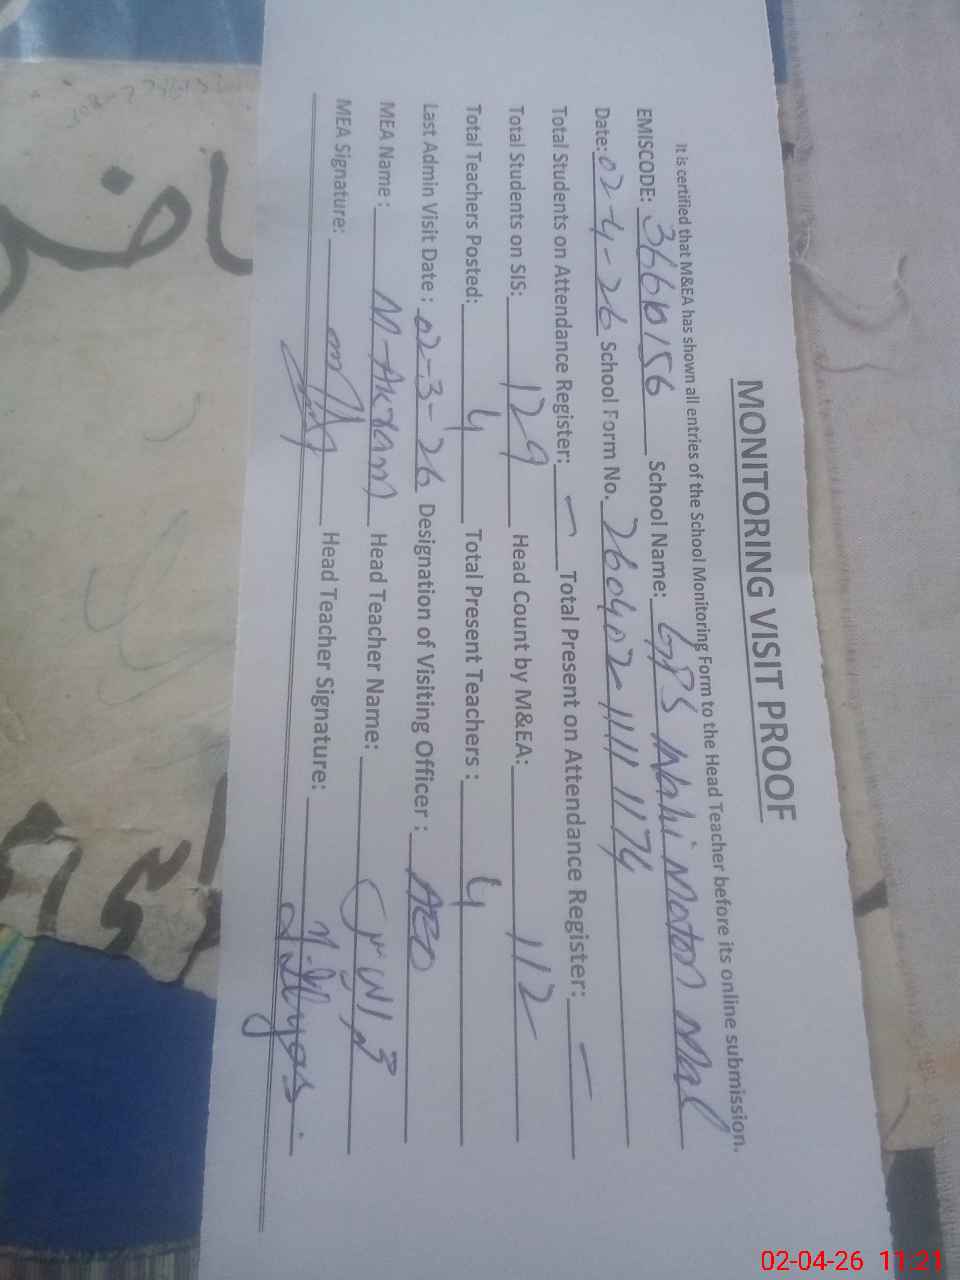 MONITORING VISIT PROOF
It is certified that M&EA has shown all entries of the School Monitoring Form to the Head Teacher before its online submission.
EMISCODE: 36610156 School Name: GPS Wahi Moton Mal
Date: 02-4-26 School Form No. 260402-11111174
Total Students on Attendance Register: - Total Present on Attendance Register: -
Total Students on SIS: 129 Head Count by M&EA: 112
Total Teachers Posted: 4 Total Present Teachers : 4
Last Admin Visit Date : 02-3-26 Designation of Visiting Officer : AEO
MEA Name : M-Akram Head Teacher Name:
MEA Signature: Head Teacher Signature: M. Ilyas
02-04-26 11:21